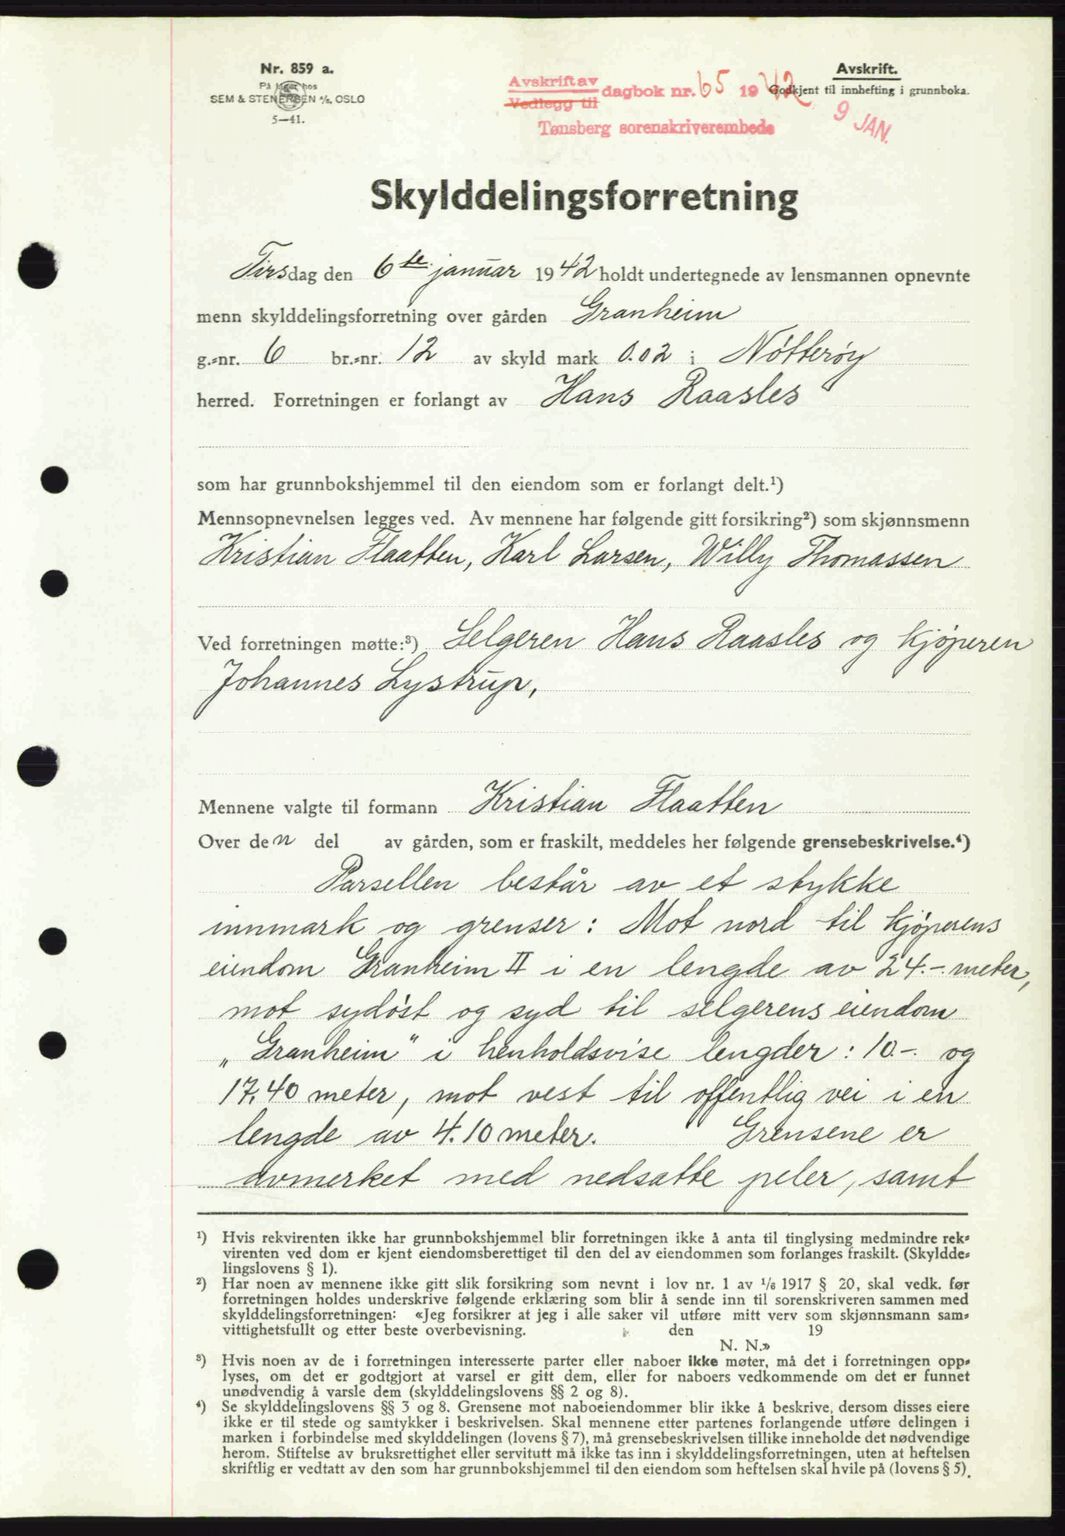 Nr. 859 a.
På lager hos
SEM & STENERSEN A/S, OSLO
5—41.
Avskrift av
Vedlegg til
dagbok nr. 65 1942
Tønsberg sorenskriverembede
Avskrift.
Godkjent til innhefting i grunnboka.
9 JAN.
Skylddelingsforretning
Tirsdag den 6te januar 1942 holdt undertegnede av lensmannen opnevnte
menn skylddelingsforretning over gården Granheim
g.-nr. 6 br.-nr. 12 av skyld mark 0.02 i Nøtterøy
herred. Forretningen er forlangt av Hans Raasles
som har grunnbokshjemmel til den eiendom som er forlangt delt.¹)
Mennsopnevnelsen legges ved. Av mennene har følgende gitt forsikring²) som skjønnsmenn
Kristian Flaatten, Karl Larsen, Willy Thomassen
Ved forretningen møtte:³) Selgeren Hans Raasles og kjøperen
Johannes Lystrup,
Mennene valgte til formann Kristian Flaatten
Over den del av gården, som er fraskilt, meddeles her følgende grensebeskrivelse.⁴)
Parsellen består av et stykke
innmark og grenser: Mot nord til kjøperens
eiendom Granheim II i en lengde av 24.- meter,
mot sydøst og syd til selgerens eiendom
„Granheim" i henholdsvise lengder: 10.- og
17.40 meter, mot vest til offentlig vei i en
lengde av 4.10 meter. Grensene er
avmerket med nedsatte peler, samt
¹) Hvis rekvirenten ikke har grunnbokshjemmel blir forretningen ikke å anta til tinglysing medmindre rek-
virenten ved dom er kjent eiendomsberettiget til den del av eiendommen som forlanges fraskilt. (Skyldde-
lingslovens § 1).
²) Har noen av mennene ikke gitt slik forsikring som nevnt i lov nr. 1 av ¹/₆ 1917 § 20, skal vedk. før
forretningen holdes underskrive følgende erklæring som blir å sende inn til sorenskriveren sammen med
skylddelingsforretningen: «Jeg forsikrer at jeg i alle saker vil utføre mitt verv som skjønnsmann sam-
vittighetsfullt og etter beste overbevisning. den 19
N. N.»
³) Hvis noen av de i forretningen interesserte parter eller naboer ikke møter, må det i forretningen opp-
lyses, om det er godtgjort at varsel er gitt dem, eller for naboers vedkommende om det er funnet
unødvendig å varsle dem (skylddelingslovens §§ 2 og 8).
⁴) Se skylddelingslovens §§ 3 og 8. Grensene mot naboeiendommer blir ikke å beskrive, dersom disses eiere
ikke er til stede og samtykker i beskrivelsen. Skal mennene etter partenes forlangende utføre delingen i
marken i forbindelse med skylddelingen (lovens § 7), må grensebeskrivelsen tillike inneholde det nødvendige
herom. Stiftelse av bruksrettighet eller servitutt må ikke tas inn i skylddelingsforretningen, uten at heftelsen
skriftlig er vedtatt av den som har grunnbokshjemmel til den eiendom som heftelsen skal hvile på (lovens § 5).